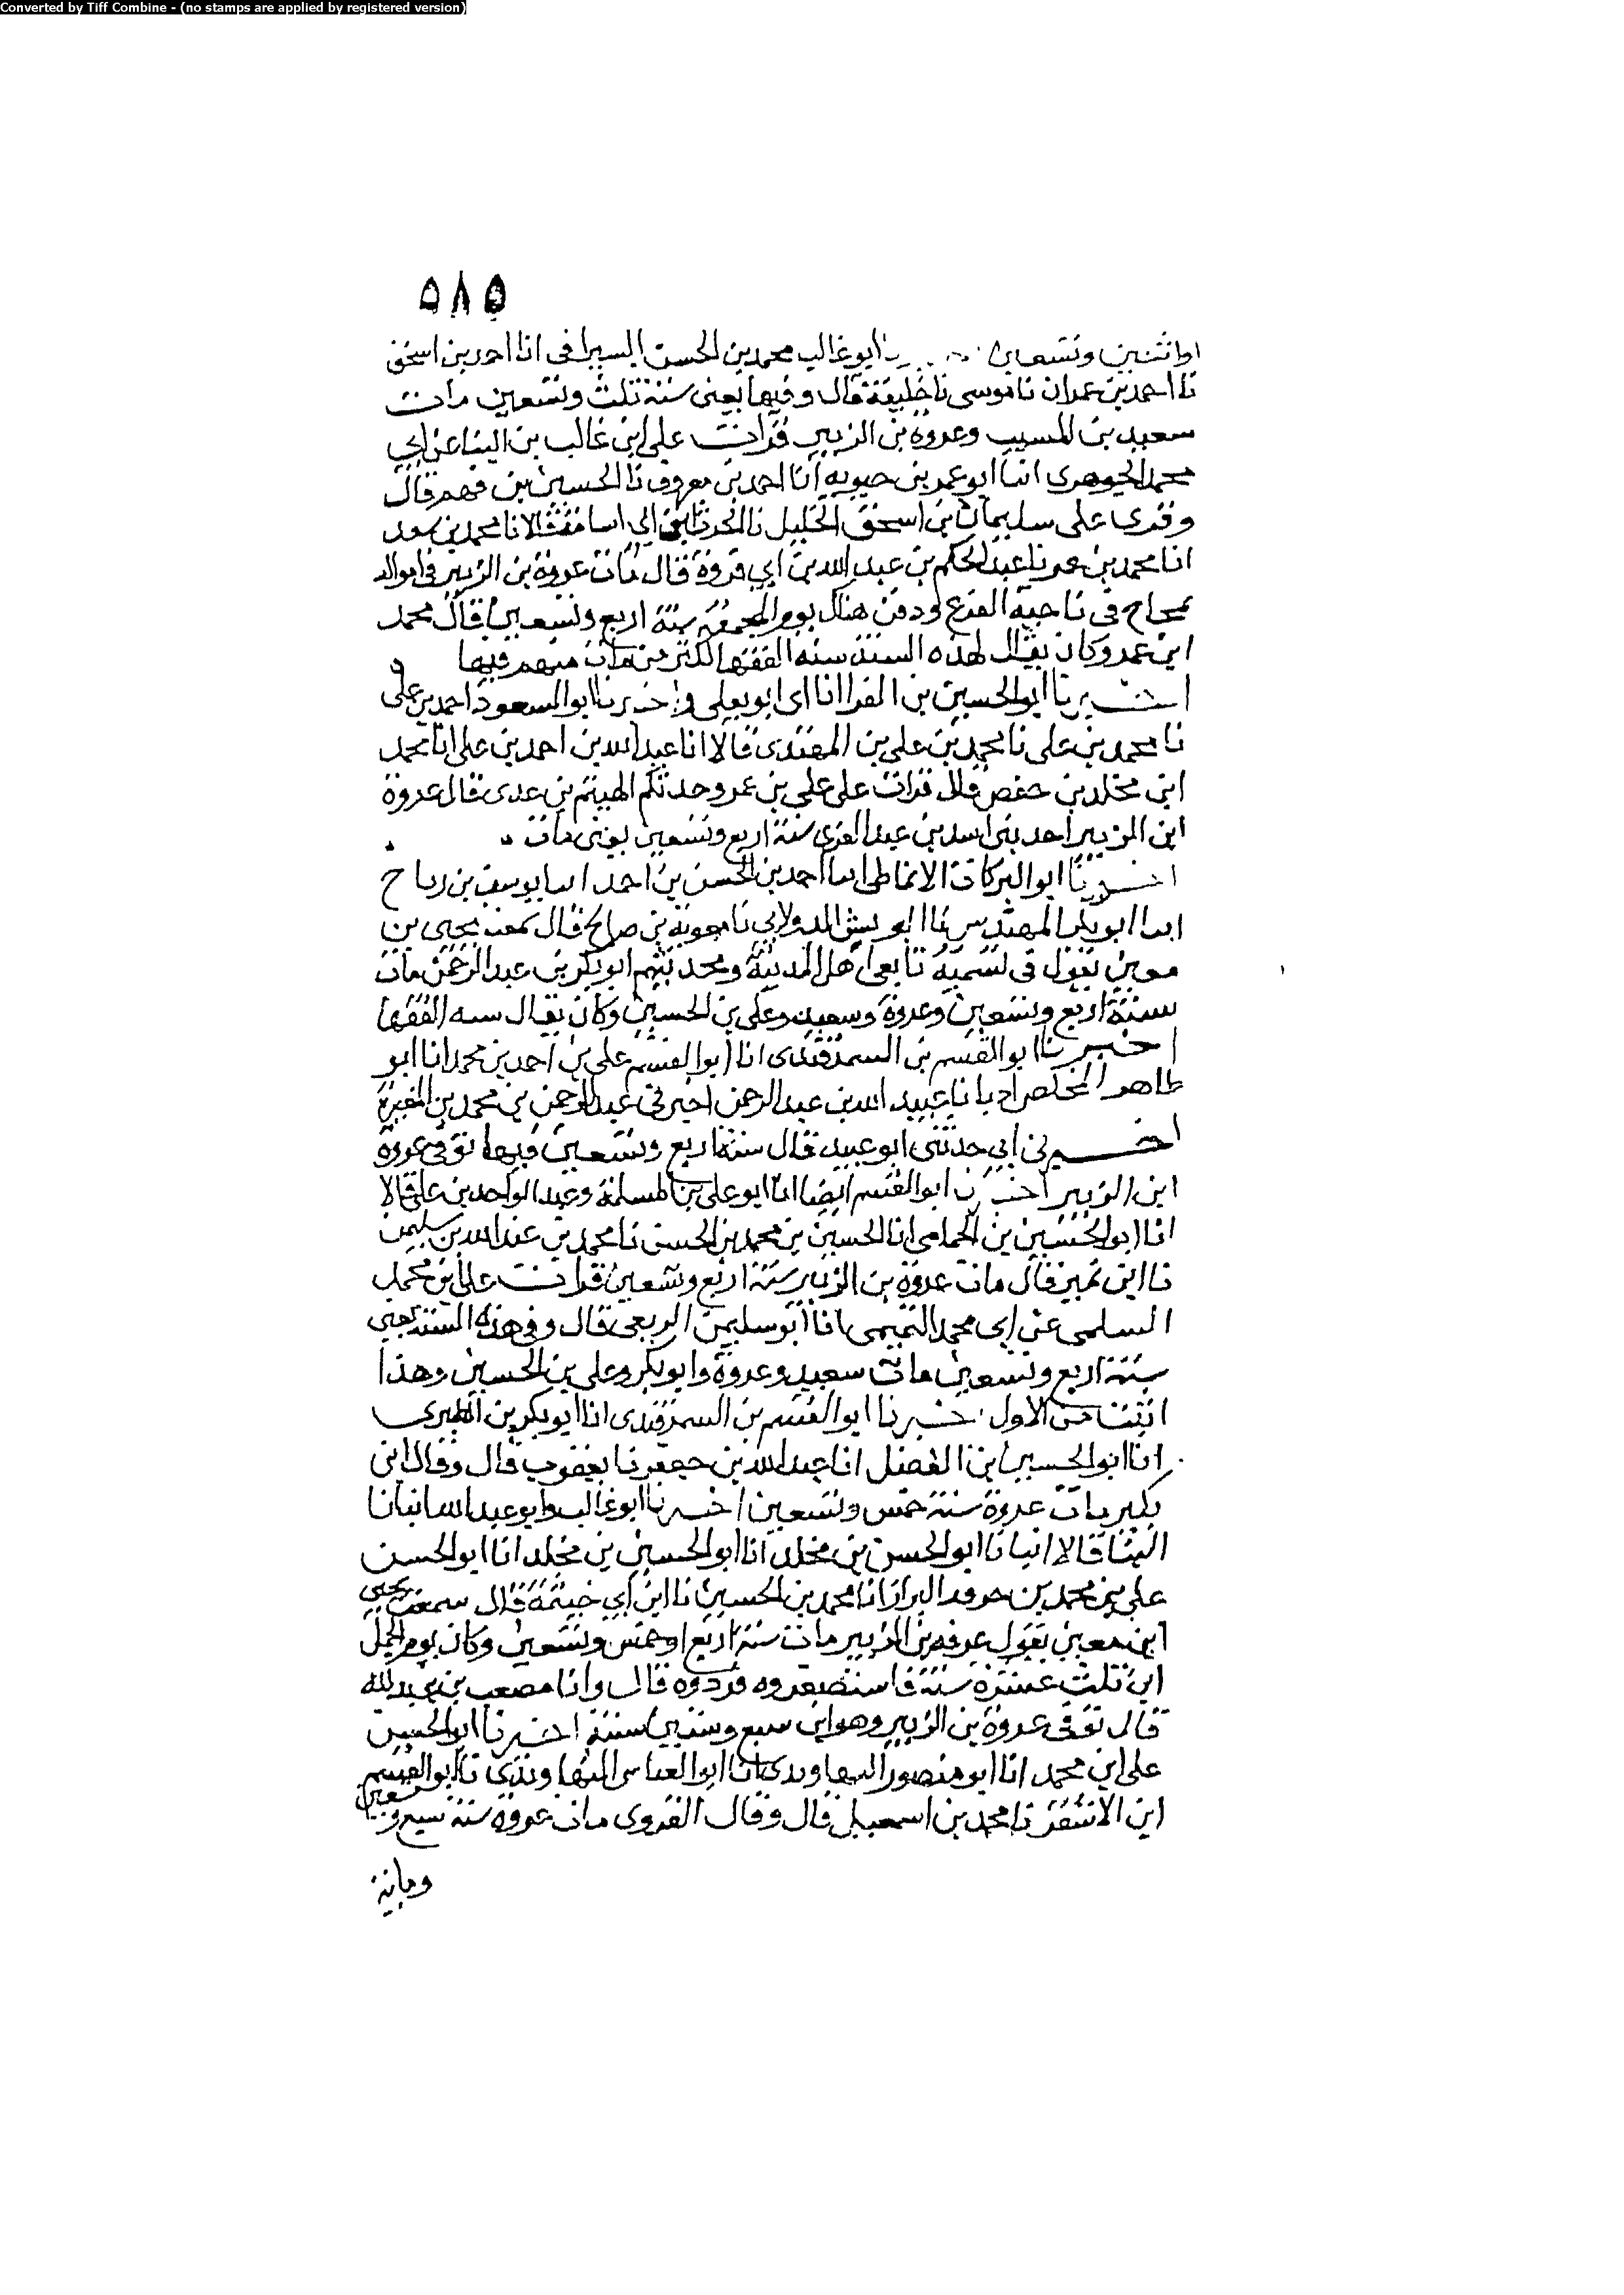 Converted by Tiff Combine - (no stamps are applied by registered version)
٥٨٥
او اثنتين وتسعين ابو غالب محمد بن الحسن السيرافى انا احمد بن اسحق
نا احمد بن عمران نا موسى نا خليفة قال وفيها يعنى سنة ثلث وتسعين مات
سعيد بن المسيب وعروة بن الزبير قرات على ابن غالب بن البنا عن ابي
محمد الجوهرى انا ابو عمر بن حيويه انا احمد بن معروف نا الحسين بن فهم قال
وقرى على سليمان بن اسحق الخليل نا الحرث بن ابي اسامة قالا نا محمد بن سعد
انا محمد بن عمر نا عبد الحكم بن عبد الله بن ابي فروة قال مات عروة بن الزبير فى امواله
بمجاح فى ناحية الفرع ودفن هناك يوم الجمعة سنة اربع وتسعين قال محمد
ابن عمر وكان يقال لهذه السنة سنه الفقها لكثرة من مات منهم فيها
اخبرنا ابو الحسين بن الفرا انا ابى ابو يعلى واخبرنا ابو السعود احمد بن على
نا محمد بن على نا محمد بن على بن المهتدى قالا انا عبيد الله بن احمد بن على انا محمد
ابن مخلد بن حفص قال قرات على على بن عمرو حدثكم الهيثم بن عدى قال عروة
ابن الزبير احد بنى اسد بن عبد العزى سنة اربع وتسعين يعنى مات
اخبرنا ابو البركات الانماطى انا احمد بن الحسن بن احمد انا يوسف بن رباح
انا ابو بكر المهندس نا ابو بشر الدولابي نا معوية بن صالح قال سمعت يحيى بن
معين يقول فى تسمية تابعى اهل المدينة ومحدثيهم ابو بكر بن عبد الرحمن مات
سنة اربع وتسعين وعروة وسعيد وعلى بن الحسين وكان يقال سنه الفقها
اخبرنا ابو القسم بن السمرقندى انا ابو القسم على بن احمد بن محمد انا ابو
طاهر المخلص اجازة نا عبيد الله بن عبد الرحمن اخبرنى عبد الرحمن بن محمد بن المغيرة
اخبرنى ابي حدثنى ابو عبيد قال سنة اربع وتسعين فيها توفى عروة
ابن الزبير اخبرنا ابو القسم ايضا انا ابو على بن المسلمة وعبد الواحد بن على قالا
انا ابو الحسين بن الحمامى انا الحسين بن محمد بن الحسن نا محمد بن عبد الله بن سليمن
نا ابن نمير قال مات عروة بن الزبير سنة اربع وتسعين قرات على ابن محمد
السلمى عن ابى محمد التميمى انا ابو سليمن الربعى قال وفى هذه السنة يعنى
سنة اربع وتسعين مات سعيد وعروة وابو بكر وعلى بن الحسين وهذا
اثبت من الاول اخبرنا ابو القسم بن السمرقندى انا ابو بكر بن الطبرى
انا ابو الحسين بن الفضل انا عبد الله بن جعفر نا يعقوب قال وقال ابن
بكير مات عروة سنة خمس وتسعين اخبرنا ابو غالب وابو عبد الله ابنا
البنا قالا انبانا ابو الحسن بن مخلد انا ابو الحسين بن مخلد انا ابو الحسن
على بن محمد بن البزاز انا محمد بن الحسين نا ابن ابي خيثمة قال سمعت يحيى
ابن معين يقول عروة بن الزبير مات سنة اربع او خمس وتسعين وكان يوم الجمل
ابن ثلث عشرة سنة فاستصغروه فردوه قال وانا مصعب بن عبد الله
قال توفى عروة بن الزبير وهو ابن سبع وستين سنة اخبرنا ابو الحسين
على ابن محمد انا ابو منصور النهاوندى انا ابو العباس النهاوندى نا ابو القسم
ابن الاشقر نا محمد بن اسمعيل قال وقال الفروى مات عروة سنة سبع وتسعين
وماية